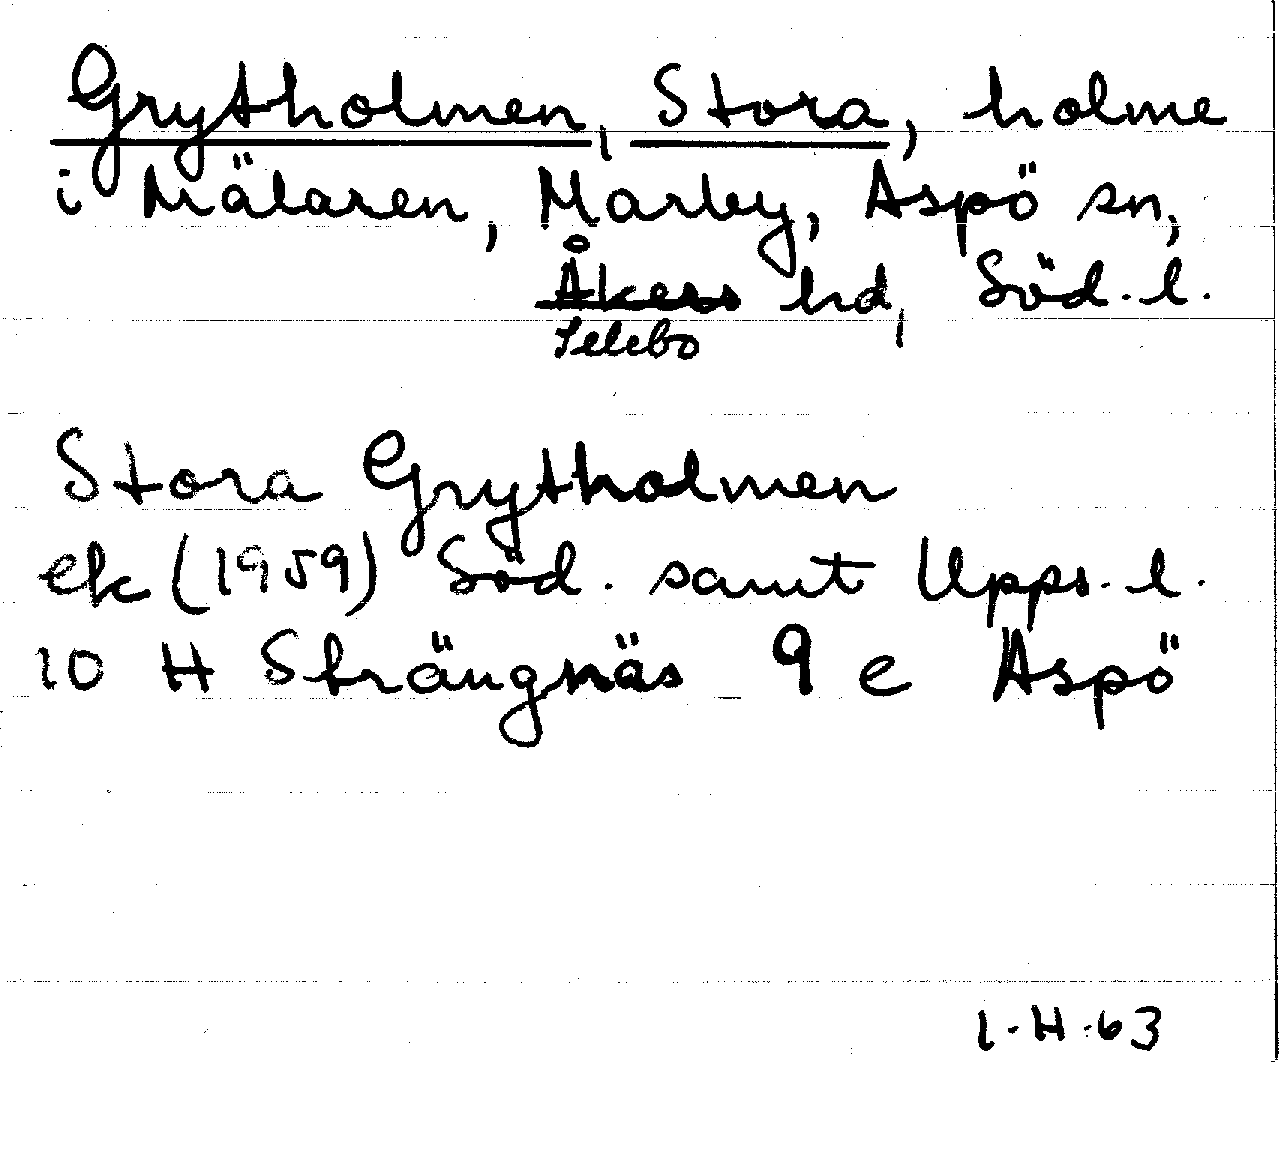 Grytholmen, Stora, holme
i Mälaren, Marby, Aspö sn,
Åkers hd, Söd. l.
Selebo
Stora Grytholmen
ek (1959) Söd. samt Upps. l.
10 H Strängnäs 9 e Aspö
I.H.63